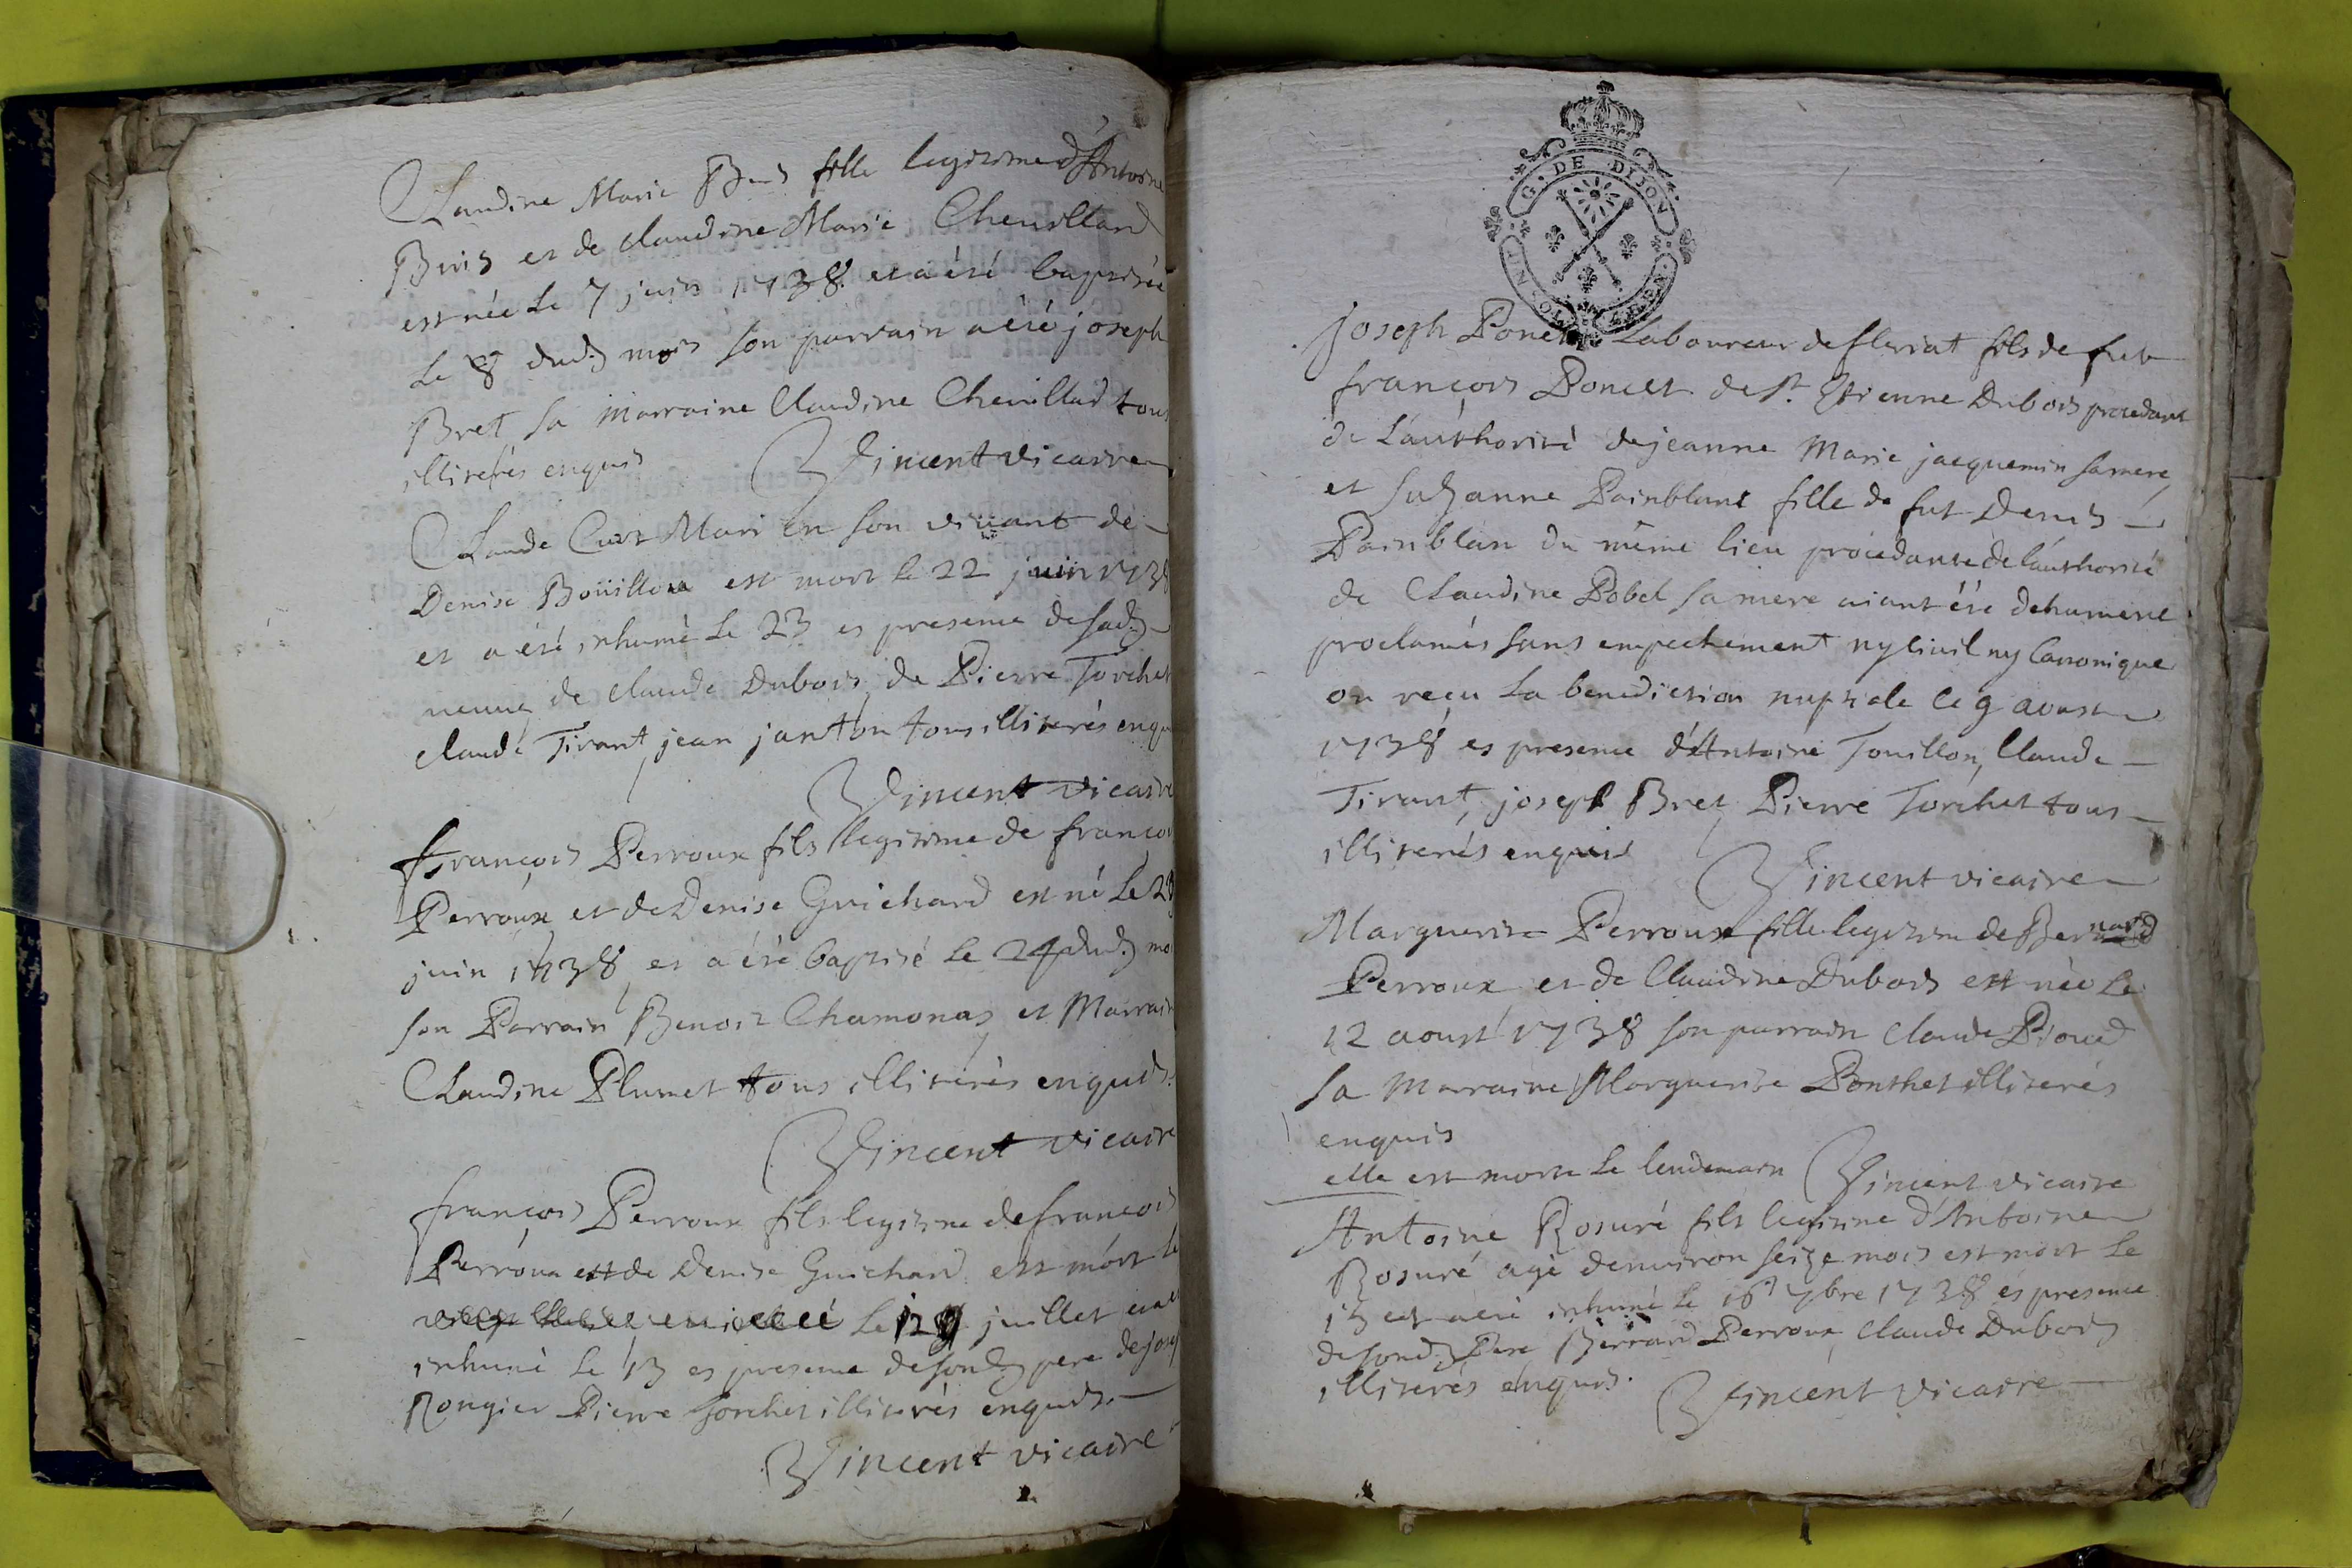 Claudine Marie fille legitime d'Antoine
Buis et de Claudine Marie Chevilland
est née le 7 juin 1738 et a été baptisée
le 8 dud. mois son parrain a été joseph
Bret sa marraine Claudine Chevillad tous
illiterés enquis Vincent vicaire
Claude Cur Mari en son vivant de
Denise Boüillou est mort le 22 juin 1738
et a été inhumé le 23 es presence de sad.
veuve de claude Dubois de Pierre Torchet
claude Tirant jean janton tous illiterés enqu
Vincent vicaire
françois Perroux fils legitime de francoi
Perroux et de Denise Guichard est né le 23
juin 1738 et a été baptisé le 24 dud. mo
son Parrain Benoit Chamonas et Marrain
Claudine Plumet tous illiterés enquis.
Vincent vicair
françois Perroux fils legitime de francois
Perroux et de Denise Guichard est mort le
le 12 juillet
inhumé le 13 es presence de sond. pere de jose
Rongier Pierre Torchet illiterés enquis.
Vincent vicaire
G. DE DIJON
joseph Poncet Laboureur de fleriat fils de fut
françois Poncet de st. Etienne Dubois procedant
de l'authorité de jeanne Marie jacquemin sa mere
et Suzanne Painblanc fille de fut Denis
Painblan du même lieu procedante de l'authorité
de Claudine Pobel sa mere aiant été dehument
proclamés sans empechement ny Civil ny Canonique
on reçu la benediction nuptiale le 9 aoust
1738 es presence d'Antoine Touillon, Claude
Tirant, joseph Bret Pierre Torchet tous
illiterés enquis
Vincent vicaire
Marguerite Perroux fille legitime de Bernard
Perroux et de Claudine Dubois est née le
12 aoust 1738 son parrain Claude Pioud
sa Marraine Marguerite Ponthet illiterés
enquis
elle est morte le lendemain Vincent vicaire
Antoine Rosuré fils legitime d'Antoine
Rosuré agé denviron seize mois est mort le
15 et a eté inhumé le 16 7bre 1738 es presence
de sond. Pere Bernard Perroux Claude Dubois
illiterés enquis. Vincent vicaire